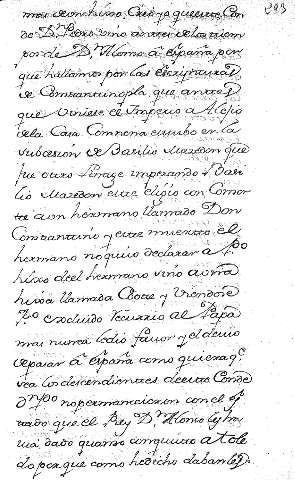 293
mas de un hijo. Creo yo que este Con
de D.n Pedro vino a
por de D.n Alonso a España por
que hallamos por las Escripturas
de Constantinopla que antes
que viniese el Imperio a Alejo
de la Casa Comnena estubo en la
subcesion de Basilio Mazedon que
fue otro linage imperando Basi
lio Mazedon este elijio con Comor
te a un hermano llamado Don
Constantino y este muriento el
hermano no quiso declarar a
hijo de el hermano sino a una
hija llamada Cboe y viendose
excluido recurrio al Papa
mas nunca le dio favor y el devio
de pasar a España como quiera q.e
sea los descendientes de este Conde
D.n P.o no permanecieron con el es
tado que el Rey D.n Alonso le ha
via dado quando conquisto a Tole
do por que como he dicho daban les